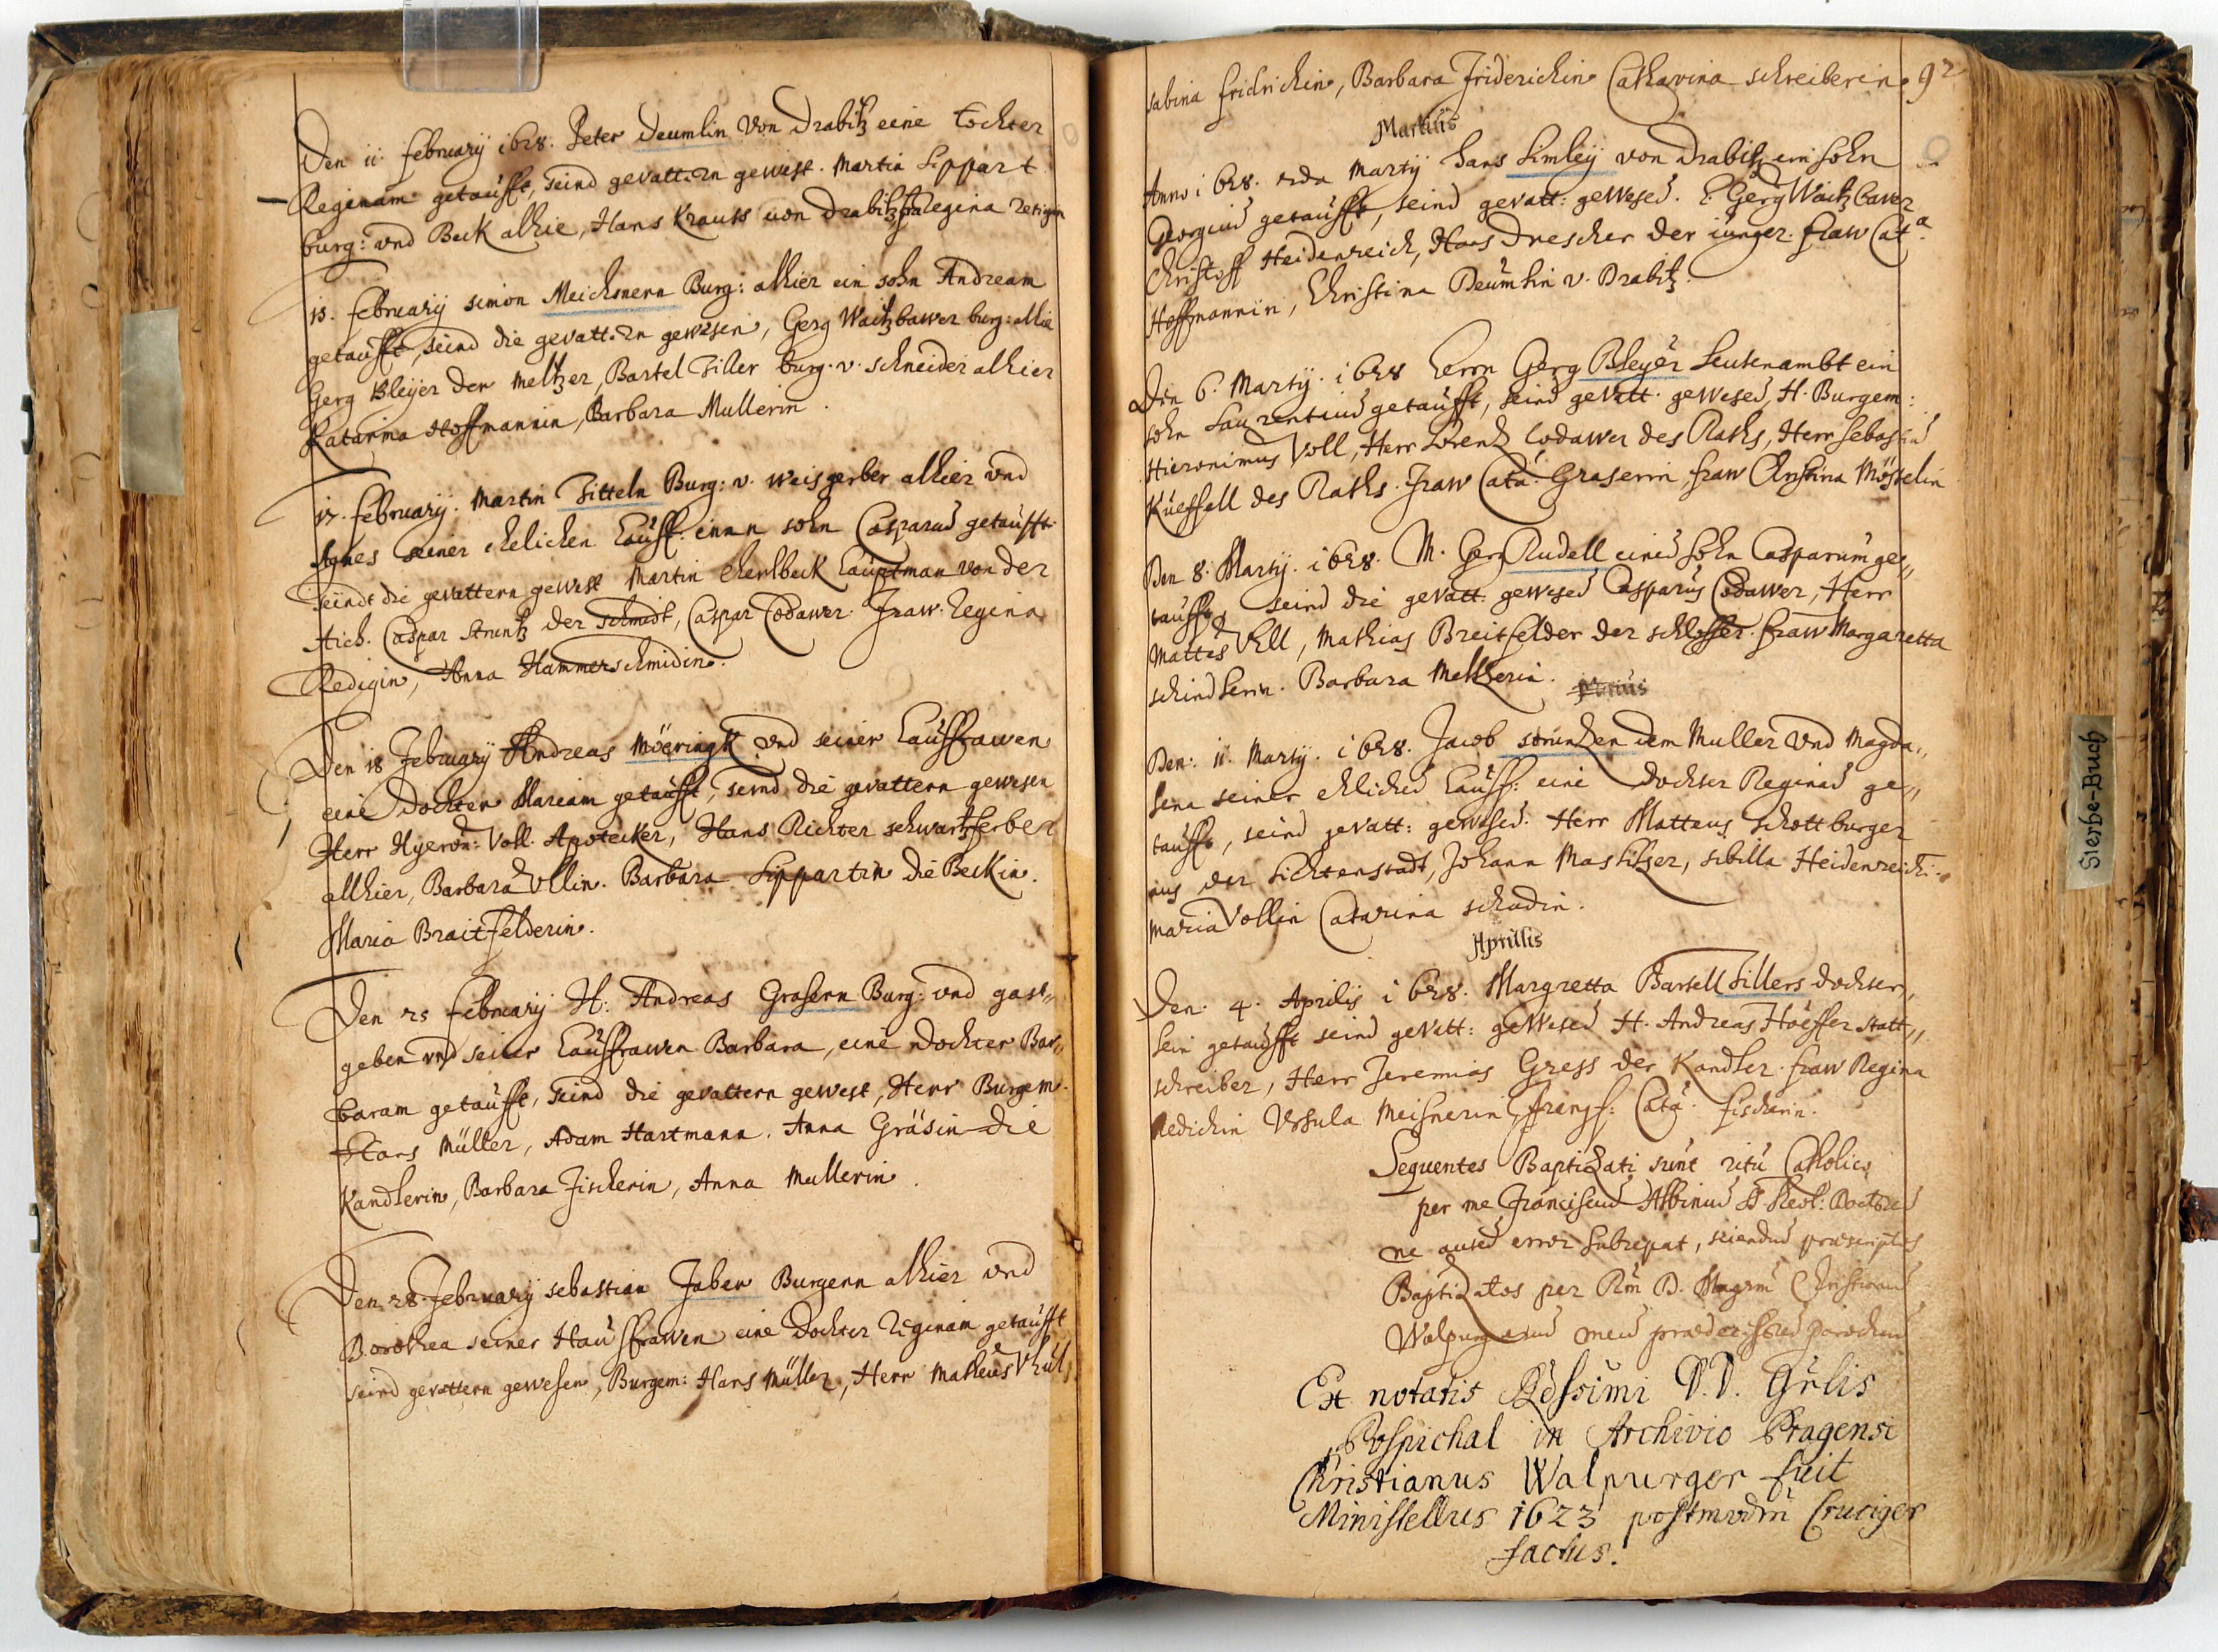 Den 11 February 1628. Peter Deumlin von Drabitz eine tochter
Reginam getaufft, seind gevattern gewest. Martin Lippart
burg: vnd Beck alhie, Hans Krauss von Drabitz, Regina
13. February simon Meichsnern Burg: alhier ein sohn Andream
getaufft, seind die gevattern gewesen, Gerg Waitzbawer burg: alhie
Gerg Bleyer der Meltzer, Bartel Tiller burg. v. schneider alhier
Katarina Hoffmannin, Barbara Mullerin.
17. February. Martin Titteln Burg: v. Weisgerber alhier vnd
Agnes seiner ehelichen Hausf: einen sohn Casparum getaufft
seindt die gevattern gewest Martin Cherlbeck Hauptman von der
Aich. Caspar Struntz der schmidt, Caspar Codawer. Fraw Regina
Redigin, Anna Hammerschmidin.
Den 18 February Andreas Möeringk vnd seiner Hausfrawen
eine Dochter Mariam getaufft, seind die gevattern gewesen
Herr Hyeron: Voll. Apotecker, Hans Richter schwartzferber
alhier, Barbara Vllin. Barbara Lippartin die Beckin.
Maria Braitfelderin.
Den 25 February H: Andreas Grasern Burg: vnd gast„
geben vnd seiner Hausfrawen Barbara, eine Dochter Bar„
baram getaufft, seind die gevattern gewest, Herr Burgem.
Hans Müller, Adam Hartmann. Anna Gräsin die
Kandlerin, Barbara Fischerin, Anna Mullerin.
Den 28. February sebastian Faber Burgern alhier vnd
Dorothea seiner Hausfrawen eine Dochter Reginam getaufft
seind gevattern gewesen, Burgem: Hans Müller, Herr Matheus
sabina fridrichin, Barbara Friderichin Catharina schreiberin. 92
Martius
Anno 1628. 2da Marty Hans Limley von Drabitz ein sohn
Georgium getaufft, seind gevatt: gewesen. Gerg Waitzbawer
Christoff Heidenreich, Hans Drescher der iunger. fraw Cata
Hoffmannin, Christina Deumlin v. Drabitz.
Den 6. Marty. 1628 Herrn Gerg Bleyer Leutenambt ein
sohn Laurentium getaufft, seind gevatt. gewesen, H. Burgem:
Hieronimus Voll, Herr Lorentz Codawer des Raths, Herr sebastian
Küeffell des Raths. Fraw Cata. Graserin, fraw Christina Möstelin
Den 8. Marty. 1628. M. Gerg Rudell einen sohn Casparum ge„
taufft, seind die gevatt. gewesen Casparus Codawer, Herr
Mattes Vll, Mathias Breitfelder der schlosser. fraw Margaretta
schindlerin. Barbara Meltzerin.
Den: 11. Marty. 1628. Jacob struntzen dem Muller vnd Magda„
lena seiner ehlichen Hausf: eine Dochter Reginam ge„
taufft, seind gevatt: gewesen. Herr Matteus schottburger
aus der Lichtenstadt, Johann Maslitzer, sibilla Heidenreichi.
Maria Vollin Catarina schadin.
Aprillis
Den: 4. Aprilis 1628. Margretta Bartell Tillers Dochter„
lein getaufft seind gevatt: gewesen H. Andreas Höeffer statt„
schreiber, Herr Jeremias Gress der Kandler. fraw Regina
Redichin Vrsula Meisnerin Cata. fischerin.
Sequentes Baptizati sunt ritu Catholico
per me Franciscum Albinum SS Theol: Doctorem
ne autem error subrepat, sciendum praescriptos
Baptizatos per Rm D. Magrm Christianum
Walpurgerum meum praedecessorem parochum
Ex notatis Rdssimi D.D. Grlis
Pospichal in Archivio Pragensi
Christianus Walpurger fuit
Ministellus 1623 postmodm Cruciger
factus.
Sterbe-Buch